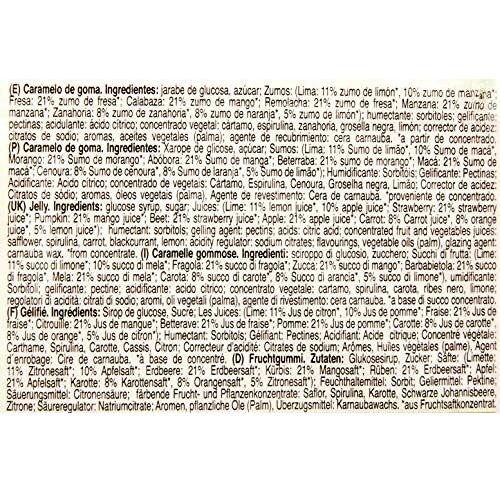 (E) Caramelo de goma. Ingredientes: jarabe de glucosa, azúcar; Zumos: (Lima: 11% zumo de limón*, 10% zumo de manzana*;
Fresa: 21% zumo de fresa*; Calabaza: 21% zumo de mango*; Remolacha: 21% zumo de fresa*; Manzana: 21% zumo de
manzana*; Zanahoria: 8% zumo de zanahoria, 8% zumo de naranja*, 5% zumo de limón*); humectante: sorbitoles; gelificante:
pectinas; acidulante: ácido cítrico; concentrado vegetal: cártamo, espirulina, zanahoria, grosella negra, limón; corrector de acidez:
citratos de sodio; aromas, aceites vegetales (palma), agente de recubrimiento: cera carnauba. *a partir de concentrado.
(P) Caramelo de goma. Ingredientes: Xarope de glicose, açúcar; Sumos: (Lima: 11% Sumo de limão*, 10% Sumo de maçã*;
Morango: 21% Sumo de morango*; Abóbora: 21% Sumo de manga*; Beterraba: 21% Sumo de morango*; Maçã: 21% Sumo de
maçã*; Cenoura: 8% Sumo de cenoura*, 8% Sumo de laranja*, 5% Sumo de limão*); Humidificante: Sorbitóis; Gelificante: Pectinas;
Acidificante: Ácido cítrico; concentrado de vegetais: Cártamo, Espirulina, Cenoura, Groselha negra, Limão; Corrector de acidez:
Citratos de sódio; aromas, óleos vegetais (palma), Agente de revestimento: Cera de carnaúba. *proveniente de concentrado.
(UK) Jelly. Ingredients: glucose syrup, sugar; Juices: (Lime: 11% lemon juice*, 10% apple juice*; Strawberry: 21% strawberry
juice*; Pumpkin: 21% mango juice*; Beet: 21% strawberry juice*; Apple: 21% apple juice*; Carrot: 8% Carrot juice*, 8% orange
juice*, 5% lemon juice*); humectant: sorbitols; gelling agent: pectins; acids: citric acid; concentrated fruit and vegetables juices:
safflower, spirulina, carrot, blackcurrant, lemon; acidity regulator: sodium citrates; flavourings, vegetable oils (palm), glazing agent:
carnauba wax. *from concentrate. (I) Caramelle gommose. Ingredienti: sciroppo di glucosio, zucchero; Succhi di frutta: (Lime:
11% succo di limone*; 10% succo di mela*; Fragola: 21% succo di fragola*; Zucca: 21% succo di mango*; Barbabietola: 21% succo
di fragola*; Mela: 21% succo di mela*; Carota: 8% succo di carote*, 8% succo di arance*, 5% succo di limone*); umidificante:
Sorbitoli; gelificante: pectine; acidificante: acidificante: acido citrico; concentrato vegetale: cartamo, spirulina, carota, ribes nero, limone;
regolatori di acidità: citrati di sodio; aromi, oli vegetali (palma), agente di rivestimento: cera carnauba. *a base di succo concentrato.
(F) Gélifié. Ingrédients: Sirop de glucose, Sucre; Les Juices: (Lime: 11% Jus de citron*, 10% Jus de pomme*; Fraise: 21% Jus de
fraise*; Citrouille: 21% Jus de mangue*; Betterave: 21% Jus de fraise*; Pomme: 21% Jus de pomme*; Carotte: 8% Jus de carotte*,
8% Jus de orange*, 5% Jus de citron*); Humectant: Sorbitols; Gélifiant: Pectines; Acidifiant: Acide citrique; Concentré végétale:
Carthame, Spiruline, Carotte, Cassis, Citron; Correcteur d'acidité: Citrates de sodium; Arômes, Huiles végétales (palme), Agent
d'enrobage: Cire de carnauba. *à base de concentré. (D) Fruchtgummi. Zutaten: Glukosesirup, Zucker; Säfte: (Limette:
11% Zitronensaft*, 10% Apfelsaft*; Erdbeere: 21% Erdbeersaft*; Kürbis: 21% Mangosaft*; Rüben: 21% Erdbeersaft*; Apfel:
21% Apfelsaft*; Karotte: 8% Karottensaft*, 8% Orangensaft*, 5% Zitronensaft*); Feuchthaltemittel: Sorbit; Geliermittel: Pektine;
Säuerungsmittel: Citronensäure; färbende Frucht- und Pflanzenkonzentrate: Saflor, Spirulina, Karotte, Schwarze Johannisbeere,
Zitrone; Säureregulator: Natriumcitrate; Aromen, pflanzliche Öle (Palm), Überzugsmittel: Karnaubawachs. *aus Fruchtsaftkonzentrat.